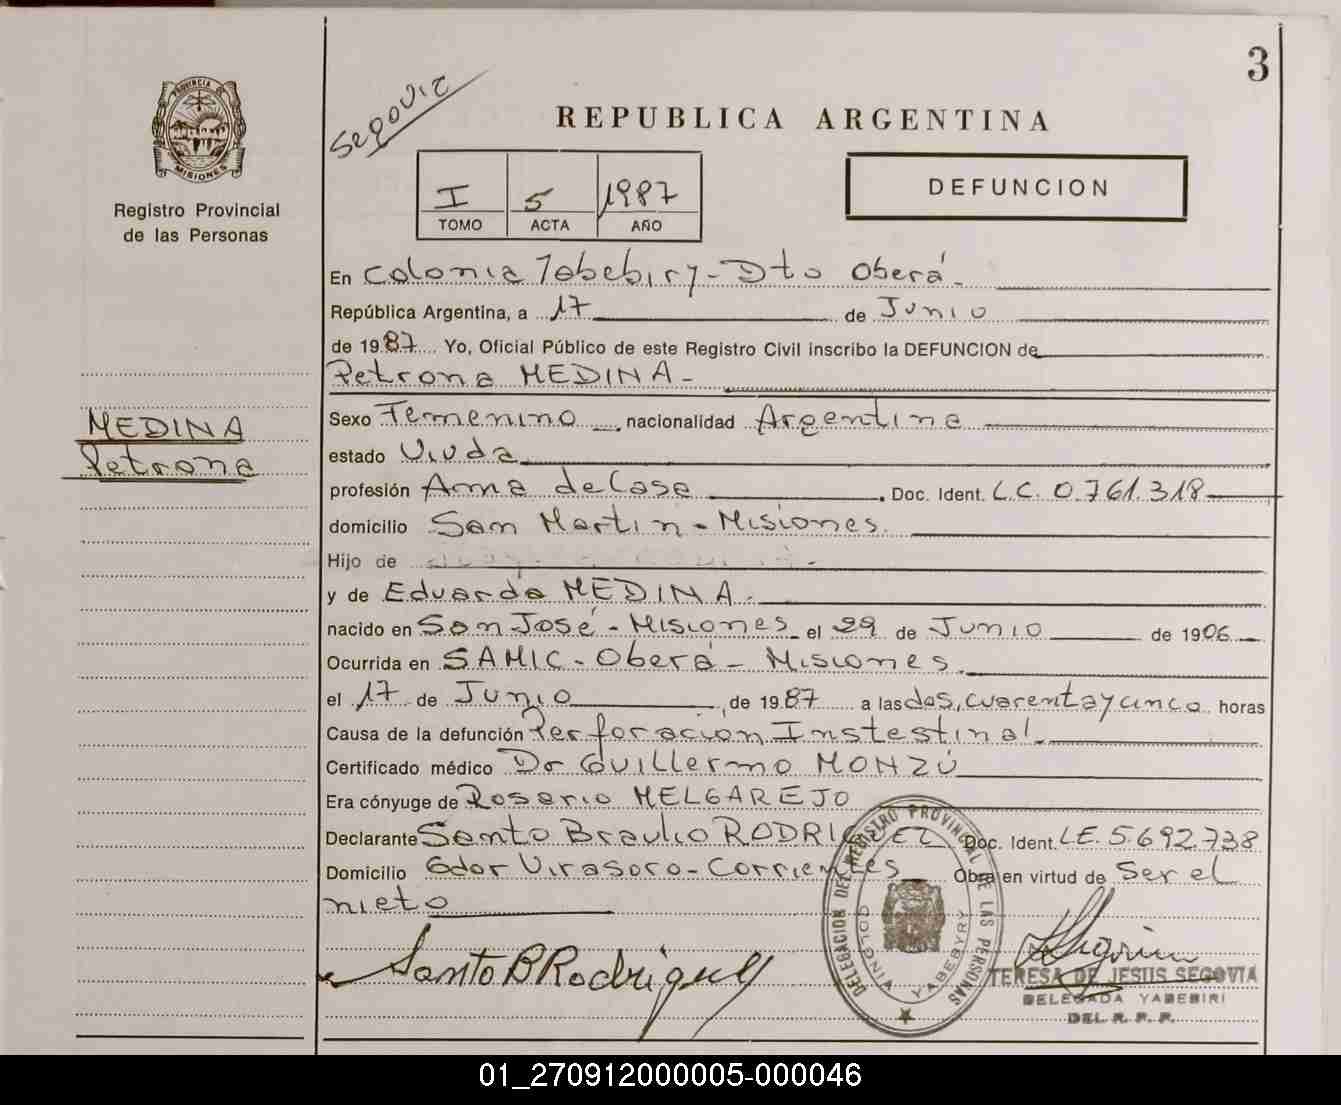 3
Segovia
REPUBLICA ARGENTINA
PROVINCIA DE MISIONES
Registro Provincial
de las Personas
I 5 1987
TOMO ACTA AÑO
DEFUNCION
En Colonia Yabebiry - Dto Oberá.
República Argentina, a 17 de Junio
de 1987 Yo, Oficial Público de este Registro Civil inscribo la DEFUNCION de
Petrona MEDINA -
MEDINA
Petrona
Sexo Femenino, nacionalidad Argentina
estado Viuda
profesión Ama de Casa. Doc. Ident. L.C. 0.761.318
domicilio San Martin - Misiones.
Hijo de
y de Eduarda MEDINA.
nacido en San José - Misiones el 29 de Junio de 1906
Ocurrida en SAMIC - Oberá - Misiones.
el 17 de Junio, de 1987 a las dos, cuarenta y cinco horas
Causa de la defunción Perforacion Instestinal.
Certificado médico Dr Guillermo MONZÚ
Era cónyuge de Rosario MELGAREJO
Declarante Santo Braulio RODRIGUEZ Doc. Ident. L.E. 5.692.738
Domicilio Gdor Virasoro - Corrientes Obra en virtud de Ser el
nieto
Santo B Rodriguez
DELEGACION DEL REGISTRO PROVINCIAL DE LAS PERSONAS
COLONIA YABEBYRY
TERESA DE JESUS SEGOVIA
DELEGADA YABEBIRI
DEL R. P. P.
01_270912000005-000046